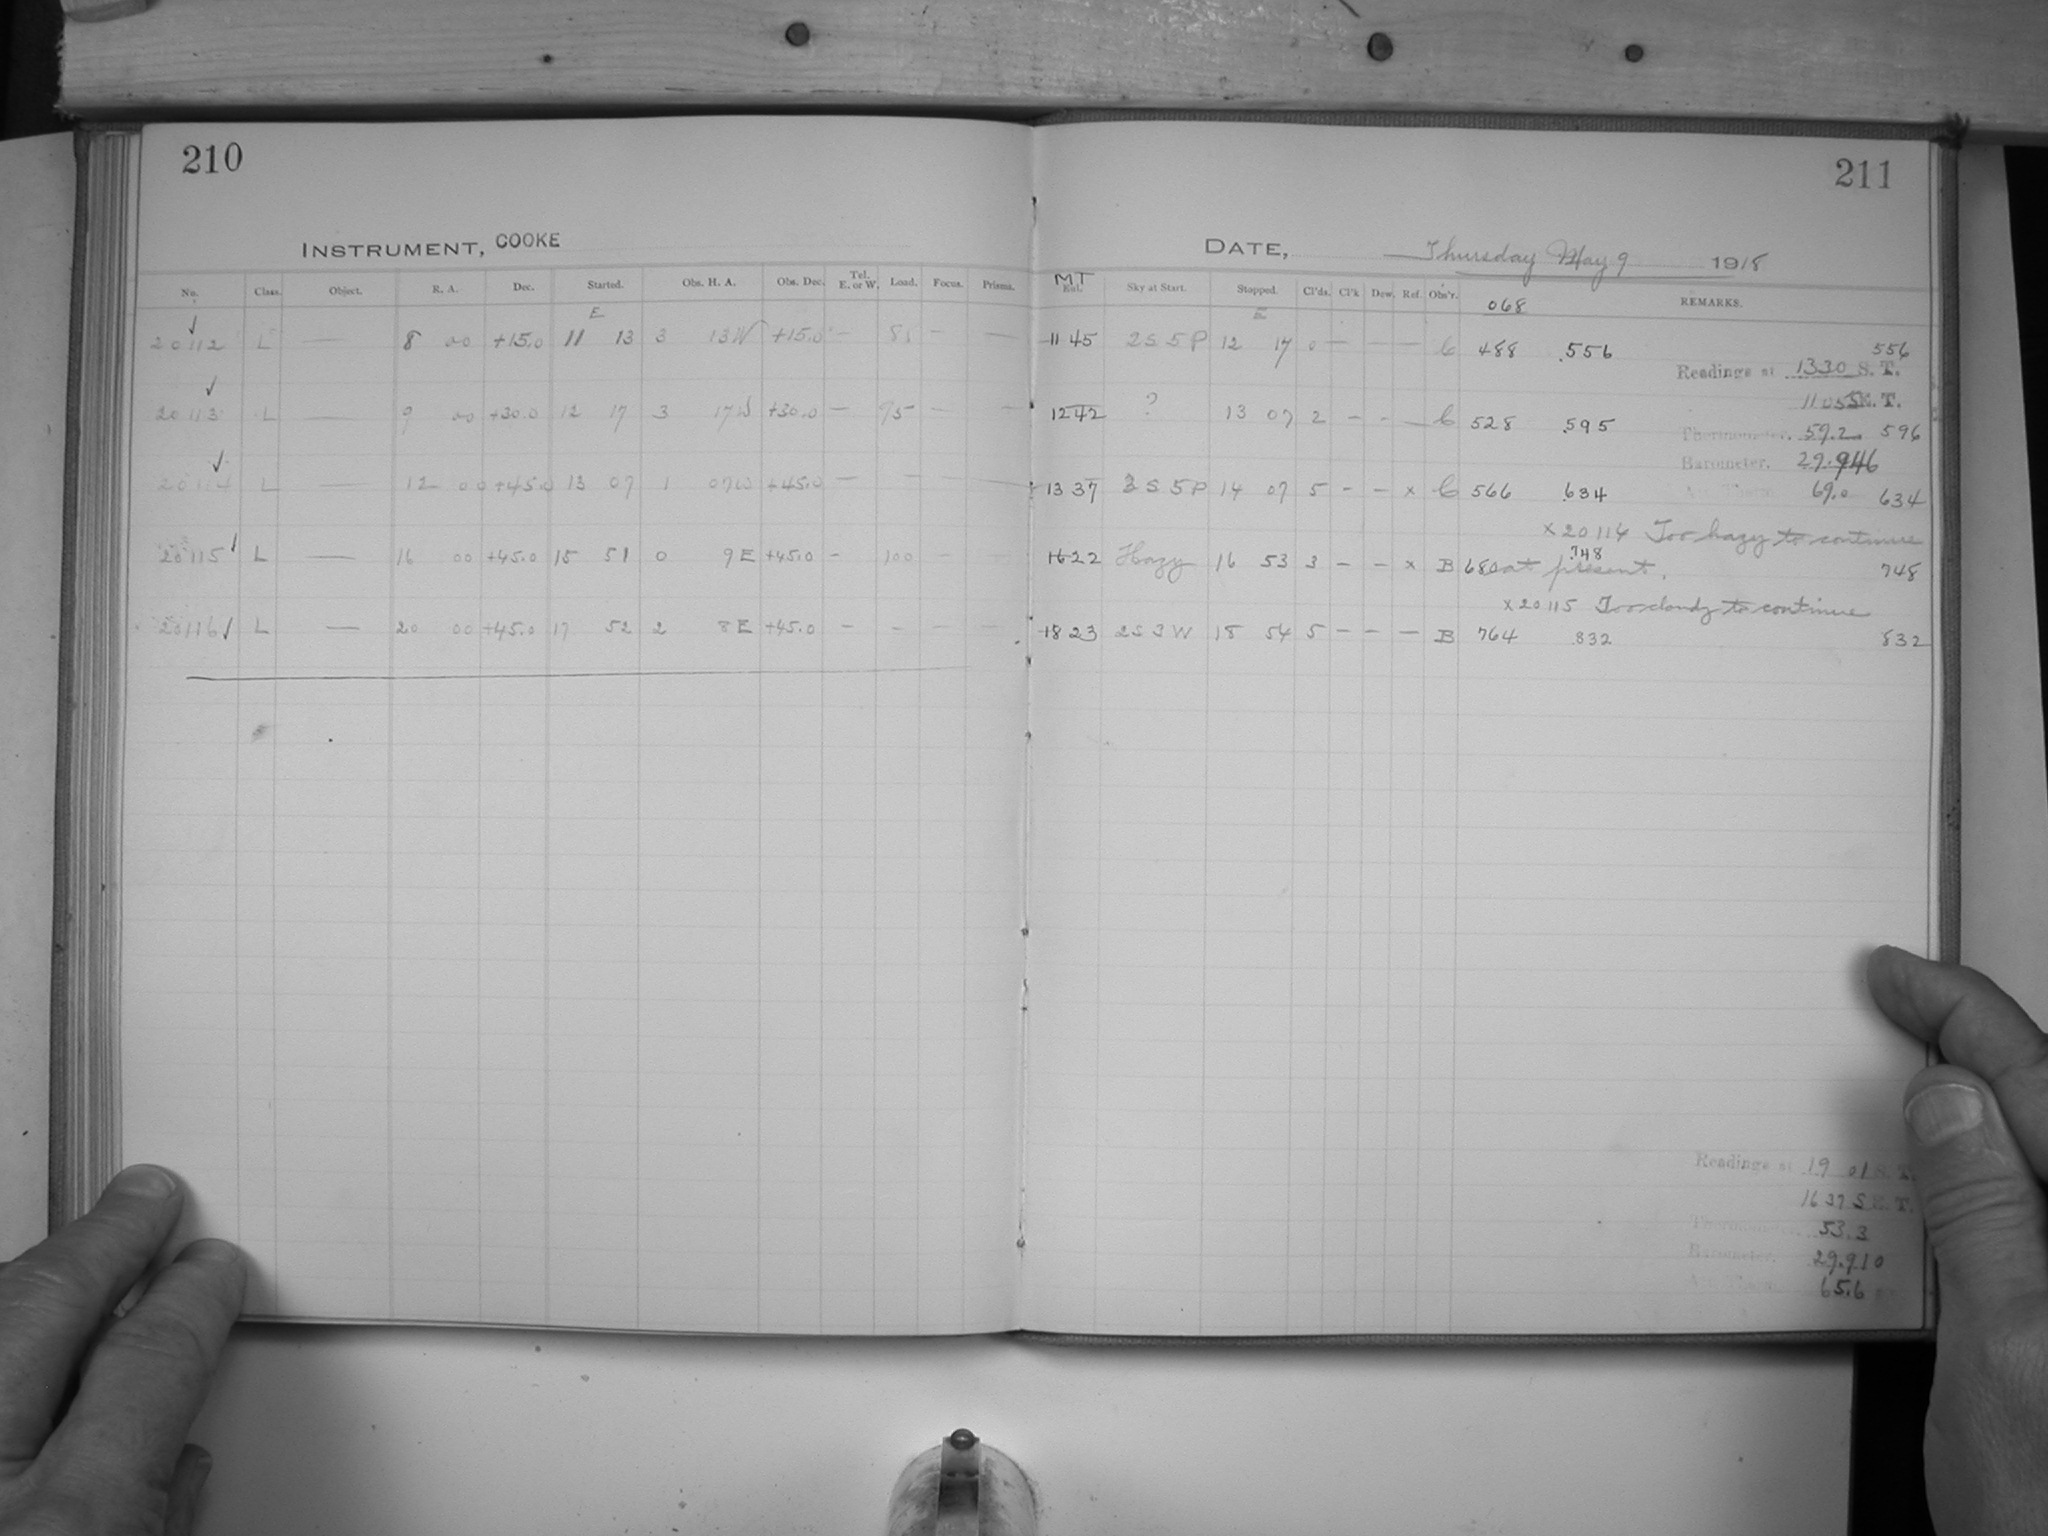 210
211
INSTRUMENT, COOKE
DATE, Thursday May 9 1918
No. Class. Object. R. A. Dec. Started. Obs. H. A. Obs. Dec. Tel. E. or W. Load. Focus. Prisms. MT Sky at Start. Stopped. Cl'ds. Cl'k Dew. Ref. Obs'r. 068 REMARKS.
E E
20112 L — 8 00 +15.0 11 13 3 13W +15.0 — — — 11 45 2S 5P 12 17 0 — — — C 488 .556 556
Readings at 1330 S. T.
1105 S E. T.
20113 L — 9 00 +30.0 12 17 3 17W +30.0 — 95 — — 12 42 ? 13 07 2 — — — C 528 .595
Thermometer. 59.2 596
Barometer. 29.946
20114 L — 12 00 +45.0 13 07 1 07W +45.0 — — — 13 37 3S 5P 14 07 5 — — x C 566 .634 69.0 634
x 20114 Too hazy to continue
20115 L — 16 00 +45.0 15 51 0 9E +45.0 — 100 — — 16 22 Hazy 16 53 3 — — x B 680 at present. .748 748
x 20115 Too cloudy to continue
20116 L — 20 00 +45.0 17 52 2 8E +45.0 — — — — 18 23 2S 3W 18 54 5 — — — B 764 .832 832
Readings at 19 01 S. T.
16 37 S E. T.
Thermometer. 53.3
Barometer. 29.910
65.6